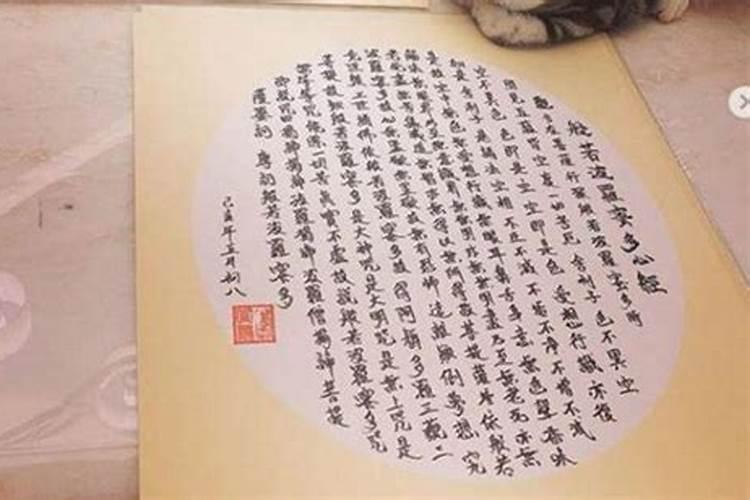 般若波羅蜜多心經
觀自在菩薩行深般若波羅蜜多時
照見五蘊皆空度一切苦厄舍利子色不異空
空不異色色即是空空即是色受想行識亦復
如是舍利子是諸法空相不生不滅不垢不淨不增不減
是故空中無色無受想行識無眼耳鼻舌身意無色聲香味
觸法無眼界乃至無意識界無無明亦無無明盡乃至無老死亦無
老死盡無苦集滅道無智亦無得以無所得故菩提薩埵依般若
波羅蜜多故心無罣礙無罣礙故無有恐怖遠離顛倒夢想究
竟涅槃三世諸佛依般若波羅蜜多故得阿耨多羅三藐三
菩提故知般若波羅蜜多是大神咒是大明咒是無上咒是
無等等咒能除一切苦真實不虛故說般若波羅蜜多咒
即說咒曰揭諦揭諦波羅揭諦波羅僧揭諦菩提
薩婆訶 摩訶般若波羅蜜多
己亥年五月初八